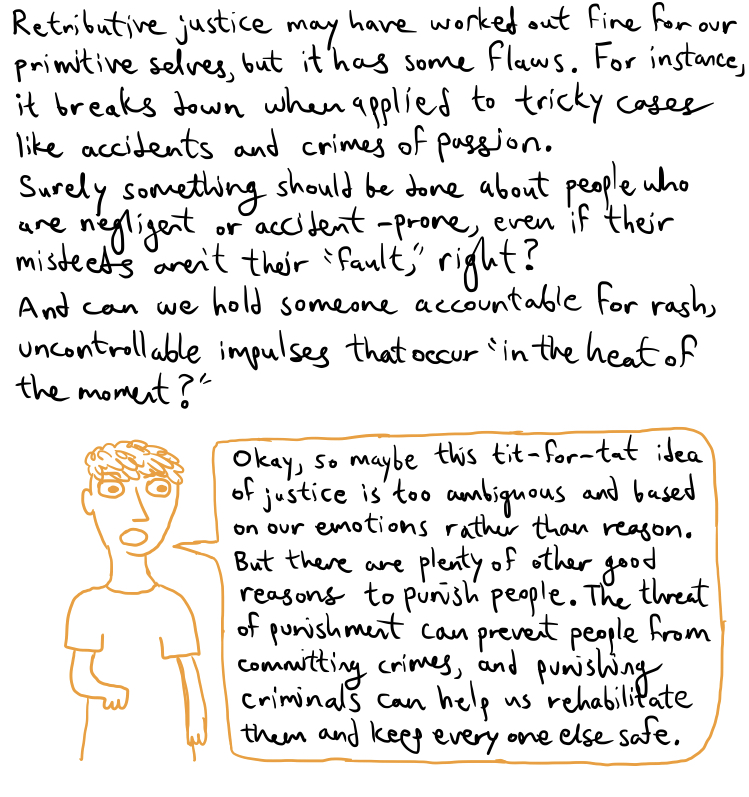 Retributive justice may have worked out fine for our
primitive selves, but it has some flaws. For instance,
it breaks down when applied to tricky cases
like accidents and crimes of passion.
Surely something should be done about people who
are negligent or accident-prone, even if their
misdeeds aren't their "fault," right?
And can we hold someone accountable for rash,
uncontrollable impulses that occur "in the heat of
the moment?"
Okay, so maybe this tit-for-tat idea
of justice is too ambiguous and based
on our emotions rather than reason.
But there are plenty of other good
reasons to punish people. The threat
of punishment can prevent people from
committing crimes, and punishing
criminals can help us rehabilitate
them and keep every one else safe.